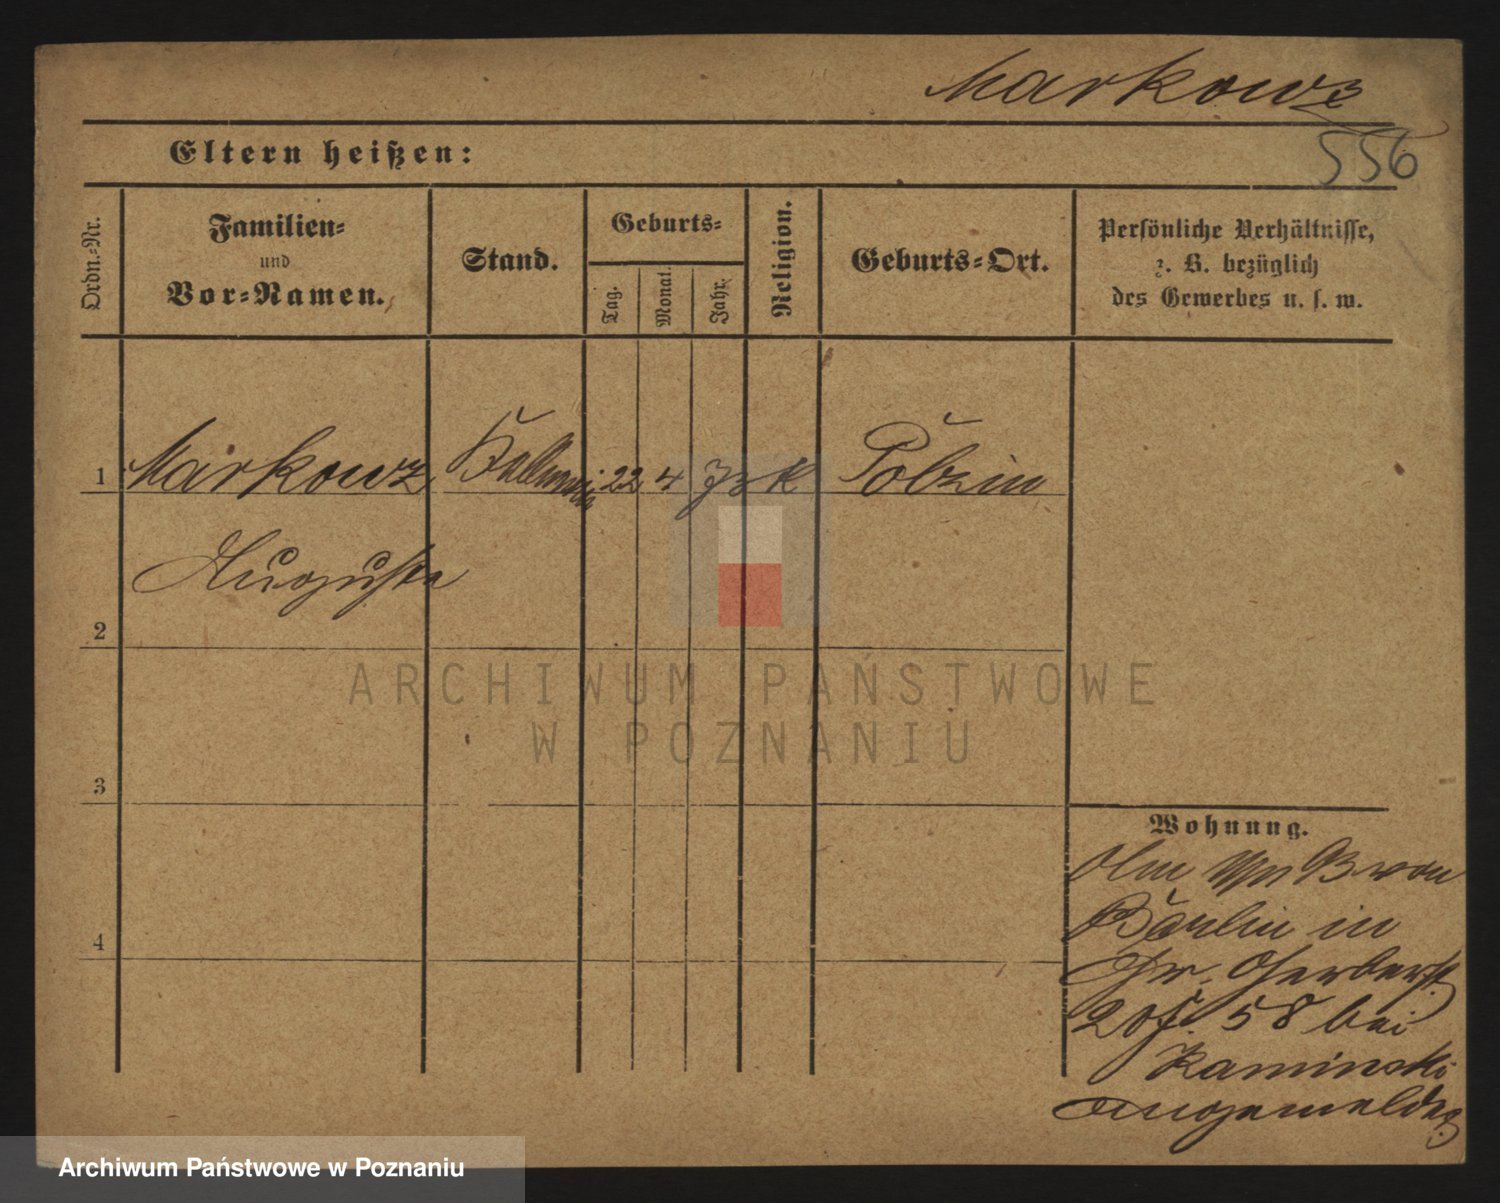 Markowz
556
Eltern heißen:
Ordn.-Nr.
Familien-
und
Vor-Namen.
Stand.
Geburts-
Tag.
Monat.
Jahr.
Religion.
Geburts-Ort.
Persönliche Verhältnisse,
z. B. bezüglich
des Gewerbes u. s. w.
1 Markowz Kellnerin 22 4 73 K Polzin
Auguste
2
ARCHIWUM PAŃSTWOWE
W POZNANIU
3
Wohnung.
93 von
Berlin in
Gr. Gerberst
58 bei
4
Kaminski
angemeldet
Archiwum Państwowe w Poznaniu